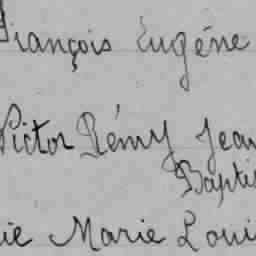 François Eugène
Victor Rémy Jean
Baptis
ie Marie Loui